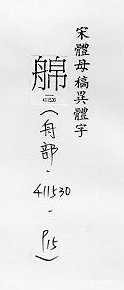 宋體母稿異體字
(舟部-411530-P15)